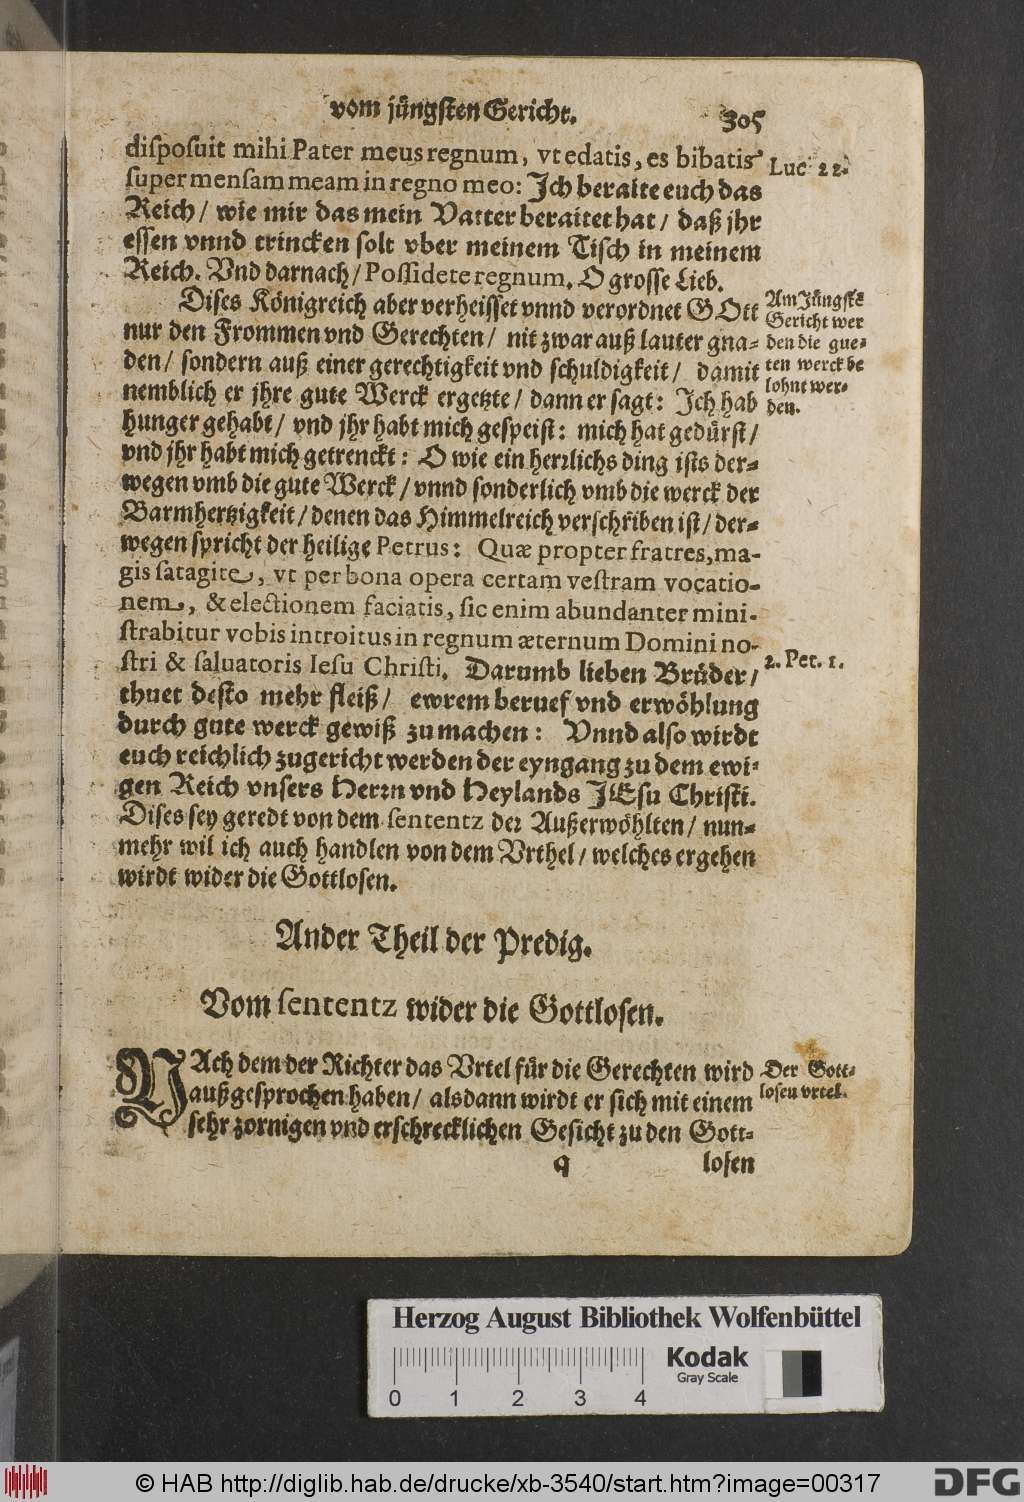 vom jüngsten Gericht. 305
disposuit mihi Pater meus regnum, vt edatis, es bibatis
super mensam meam in regno meo: Ich beraite euch das
Reich / wie mir das mein Vatter beraitet hat / daß jhr
essen vnnd trincken solt vber meinem Tisch in meinem
Reich. Vnd darnach / Possidete regnum. O grosse Lieb.
Luc 22.
Dises Königreich aber verheisset vnnd verordnet GOtt
nur den Frommen vnd Gerechten / nit zwar auß lauter gna-
den / sondern auß einer gerechtigkeit vnd schuldigkeit / damit
nemblich er jhre gute Werck ergetzte / dann er sagt: Ich hab
hunger gehabt / vnd jhr habt mich gespeist: mich hat gedürst /
vnd jhr habt mich getrenckt: O wie ein herrlichs ding ists der-
wegen vmb die gute Werck / vnnd sonderlich vmb die werck der
Barmhertzigkeit / denen das Himmelreich verschriben ist / der-
wegen spricht der heilige Petrus: Quæ propter fratres, ma-
gis satagite, vt per bona opera certam vestram vocatio-
nem, & electionem faciatis, sic enim abundanter mini-
strabitur vobis introitus in regnum æternum Domini no-
stri & saluatoris Iesu Christi. Darumb lieben Brüder /
thuet desto mehr fleiß / ewrem beruef vnd erwöhlung
durch gute werck gewiß zu machen: Vnnd also wirdt
euch reichlich zugericht werden der eyngang zu dem ewi-
gen Reich vnsers Herrn vnd Heylands JEsu Christi.
Dises sey geredt von dem sententz der Außerwöhlten / nun-
mehr wil ich auch handlen von dem Vrthel / welches ergehen
wirdt wider die Gottlosen.
Am Jüngste
Gericht wer
den die gue-
ten werck be
lohnt wer-
den.
2. Pet. 1.
Ander Theil der Predig.
Vom sententz wider die Gottlosen.
NAch dem der Richter das Vrtel für die Gerechten wird
außgesprochen haben / alsdann wirdt er sich mit einem
sehr zornigen vnd erschrecklichen Gesicht zu den Gott-
Der Gott-
losen vrtel.
q losen
Herzog August Bibliothek Wolfenbüttel
0 1 2 3 4
Kodak
Gray Scale
© HAB http://diglib.hab.de/drucke/xb-3540/start.htm?image=00317
DFG